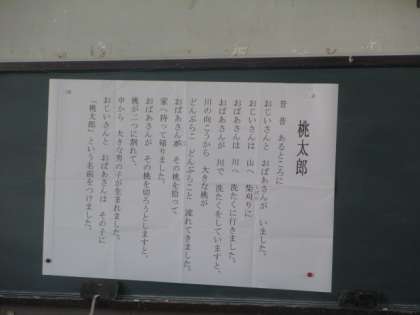 桃太郎
昔 昔 あるところに
おじいさんと おばあさんが いました。
おじいさんは 山へ 柴刈りに
おばあさんは 川へ 洗たくに行きました。
おばあさんが 川で 洗たくをしていますと、
川の向こうから 大きな桃が
どんぶらこ どんぶらこと 流れてきました。
おばあさんが その桃を拾って
家へ持って帰りました。
おばあさんが その桃を切ろうとしますと、
桃が二つに割れて、
中から 大きな男の子が生まれました。
おじいさんと おばあさんは その子に
「桃太郎」という名前をつけました。